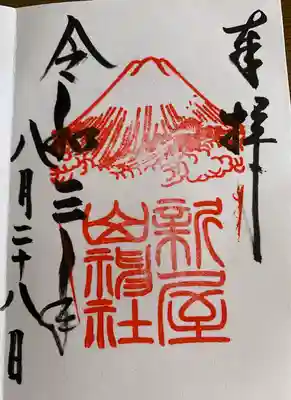 奉拝
新屋
山神社
令和三年
八月二十八日